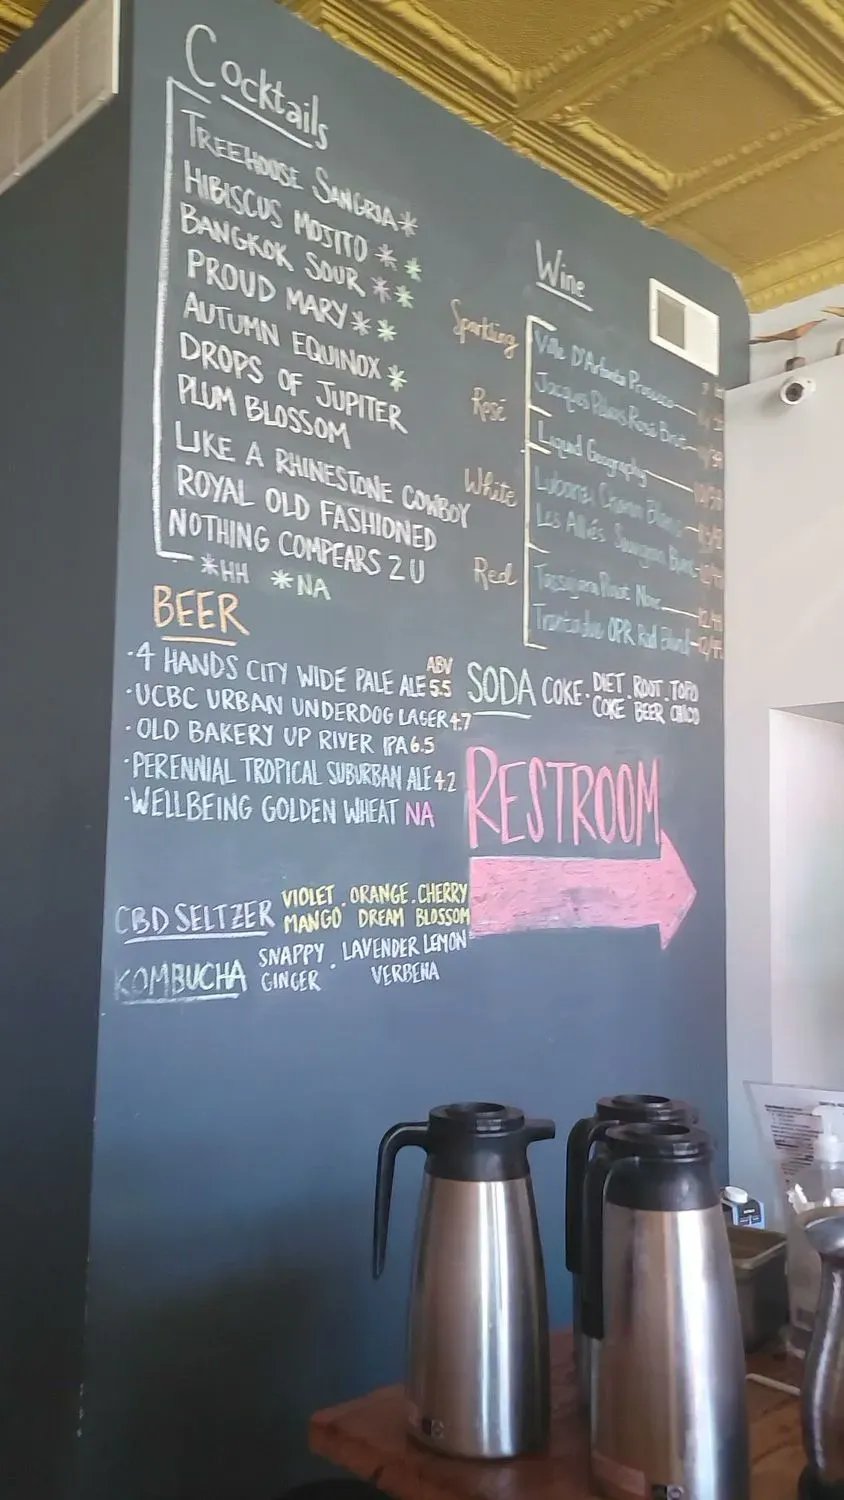 Cocktails
TREEHOUSE SANGRIA*
HIBISCUS MOJITO **
BANGKOK SOUR **
PROUD MARY **
AUTUMN EQUINOX *
DROPS OF JUPITER
PLUM BLOSSOM
LIKE A RHINESTONE COWBOY
ROYAL OLD FASHIONED
NOTHING COMPEARS 2 U
*HH *NA
Wine
Sparkling
Ville D'Arfanta Prosecco
Jacques Rosé
Rosé
Liquid Geography
White
Chenin Blanc
Les Alliés Sauvignon Blanc
Red
Tassajara Pinot Noir
OPR Red Blend
BEER
ABV
·4 HANDS CITY WIDE PALE ALE 5.5
·UCBC URBAN UNDERDOG LAGER 4.7
·OLD BAKERY UP RIVER IPA 6.5
·PERENNIAL TROPICAL SUBURBAN ALE 4.2
·WELLBEING GOLDEN WHEAT NA
SODA COKE · DIET COKE . ROOT BEER . TOPO CHICO
RESTROOM
CBD SELTZER VIOLET MANGO . ORANGE DREAM . CHERRY BLOSSOM
KOMBUCHA SNAPPY GINGER . LAVENDER LEMON VERBENA